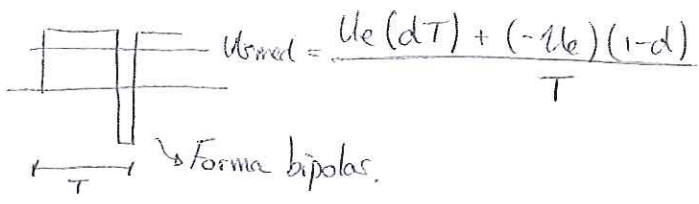 Usmed = Ue (dT) + (-Ue) (1-d)
T
T
↳ Forma bipolar.